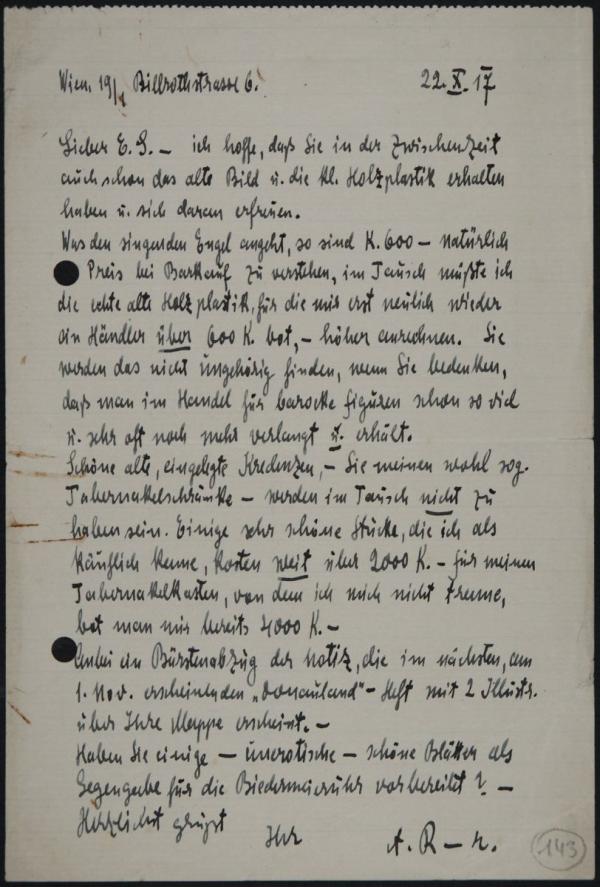 Wien, 19/1 Billrothstrasse 6. 22. X. 17
Lieber E. S. – ich hoffe, daß Sie in der Zwischenzeit
auch schon das alte Bild u. die kl. Holzplastik erhalten
haben u. sich daran erfreuen.
Was den singenden Engel angeht, so sind K. 600 – natürlich
Preis bei Barkauf zu verstehen, im Tausch müßte ich
die echte alte Holzplastik, für die mir erst neulich wieder
ein Händler über 600 K. bot, – höher anrechnen. Sie
werden das nicht ungehörig finden, wenn Sie bedenken,
daß man im Handel für barocke Figuren schon so viel
u. sehr oft noch mehr verlangt u. erhält.
Schöne alte, eingelegte Kredenzen, – Sie meinen wohl sog.
Tabernakelschränke – werden im Tausch nicht zu
haben sein. Einige sehr schöne Stücke, die ich als
käuflich kenne, kosten weit über 2000 K. – für meinen
Tabernakelkasten, von dem ich mich nicht trenne,
bot man mir bereits 4000 K. –
Anbei ein Bürstenabzug der Notiz, die im nächsten, am
1. Nov. erscheinenden „Donauland" – Heft mit 2 Illustr.
über Ihre Mappe erscheint. –
Haben Sie einige – unerotische – schöne Blätter als
Gegengabe für die Biedermaieruhr vorbereitet? –
Herzlichst grüßt
Ihr A. R – r.
143